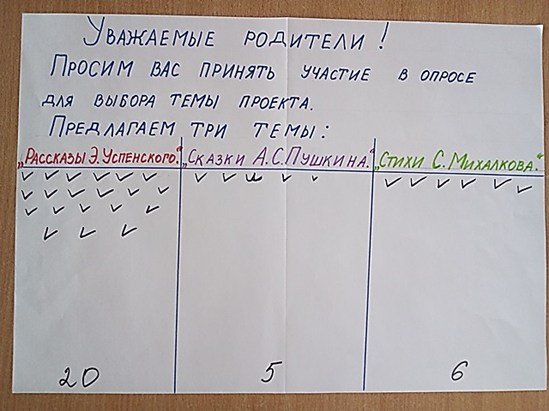 Уважаемые родители!
Просим вас принять участие в опросе
для выбора темы проекта.
Предлагаем три темы:
„Рассказы Э.Успенского.“ „Сказки А.С.Пушкина.“ „Стихи С.Михалкова.“
20 5 6